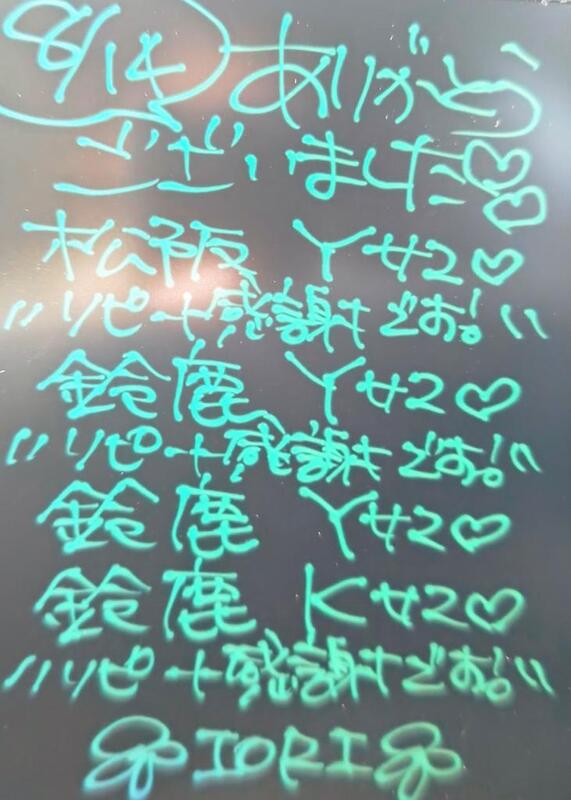 8/14 ありがとう
ございました♡♡
松阪 Y様♡
"リピート感謝です!!"
鈴鹿 Y様♡
"リピート感謝です!!"
鈴鹿 Y様♡
鈴鹿 K様♡
"リピート感謝です!!"
IORI